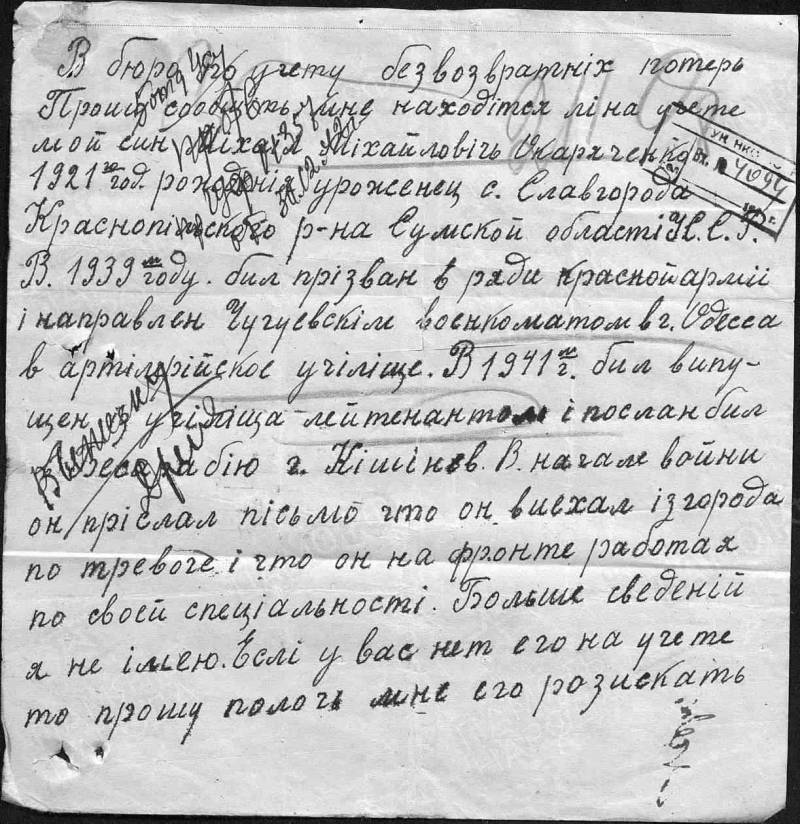 В бюро по учету безвозвратніх потерь
Прошу сообщить мне находітся лі на учете
мой син Міхаіл Міхайловіч Скаряченко
1921го год. рождєнія урожєнец с. Славгорода
Краснопільского р-на Сумской області У.С.С.Р.
В. 1939м году. бил прізван в ряди красной арміі
і направлен Чугуевскім военкоматом в г. Одесса
в артілєрійское учіліще. В 1941м г. бил випу-
щен з учіліща лейтенантом і послан бил
в Бесарабію г. Кішінєв. В. начале войни
он пріслал пісьмо что он виехал із города
по тревоге і что он на фронте работая
по своєй спеціальності. Больше сведеній
я не імею. Еслі у вас нет его на учете
то прошу помочь мне его розискать